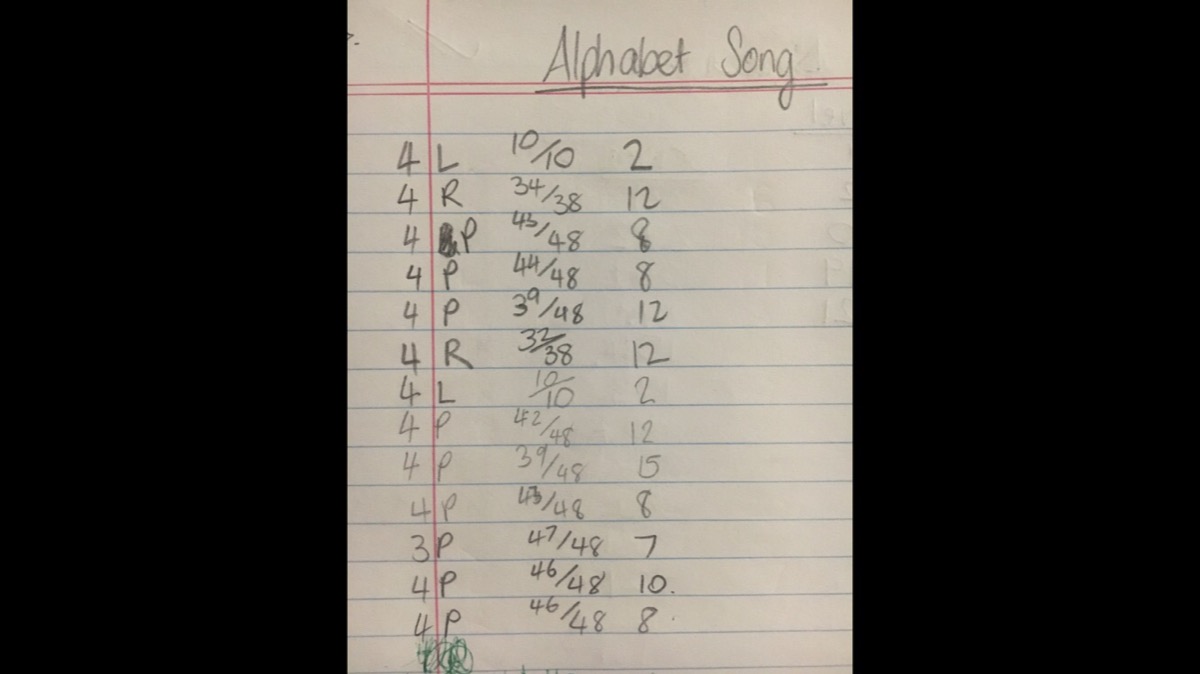 Alphabet Song
4 L 10/10 2
4 R 34/38 12
4 P 43/48 8
4 P 44/48 8
4 P 39/48 12
4 R 32/38 12
4 L 10/10 2
4 P 42/48 12
4 P 39/48 15
4 P 43/48 8
3 P 47/48 7
4 P 46/48 10.
4 P 46/48 8